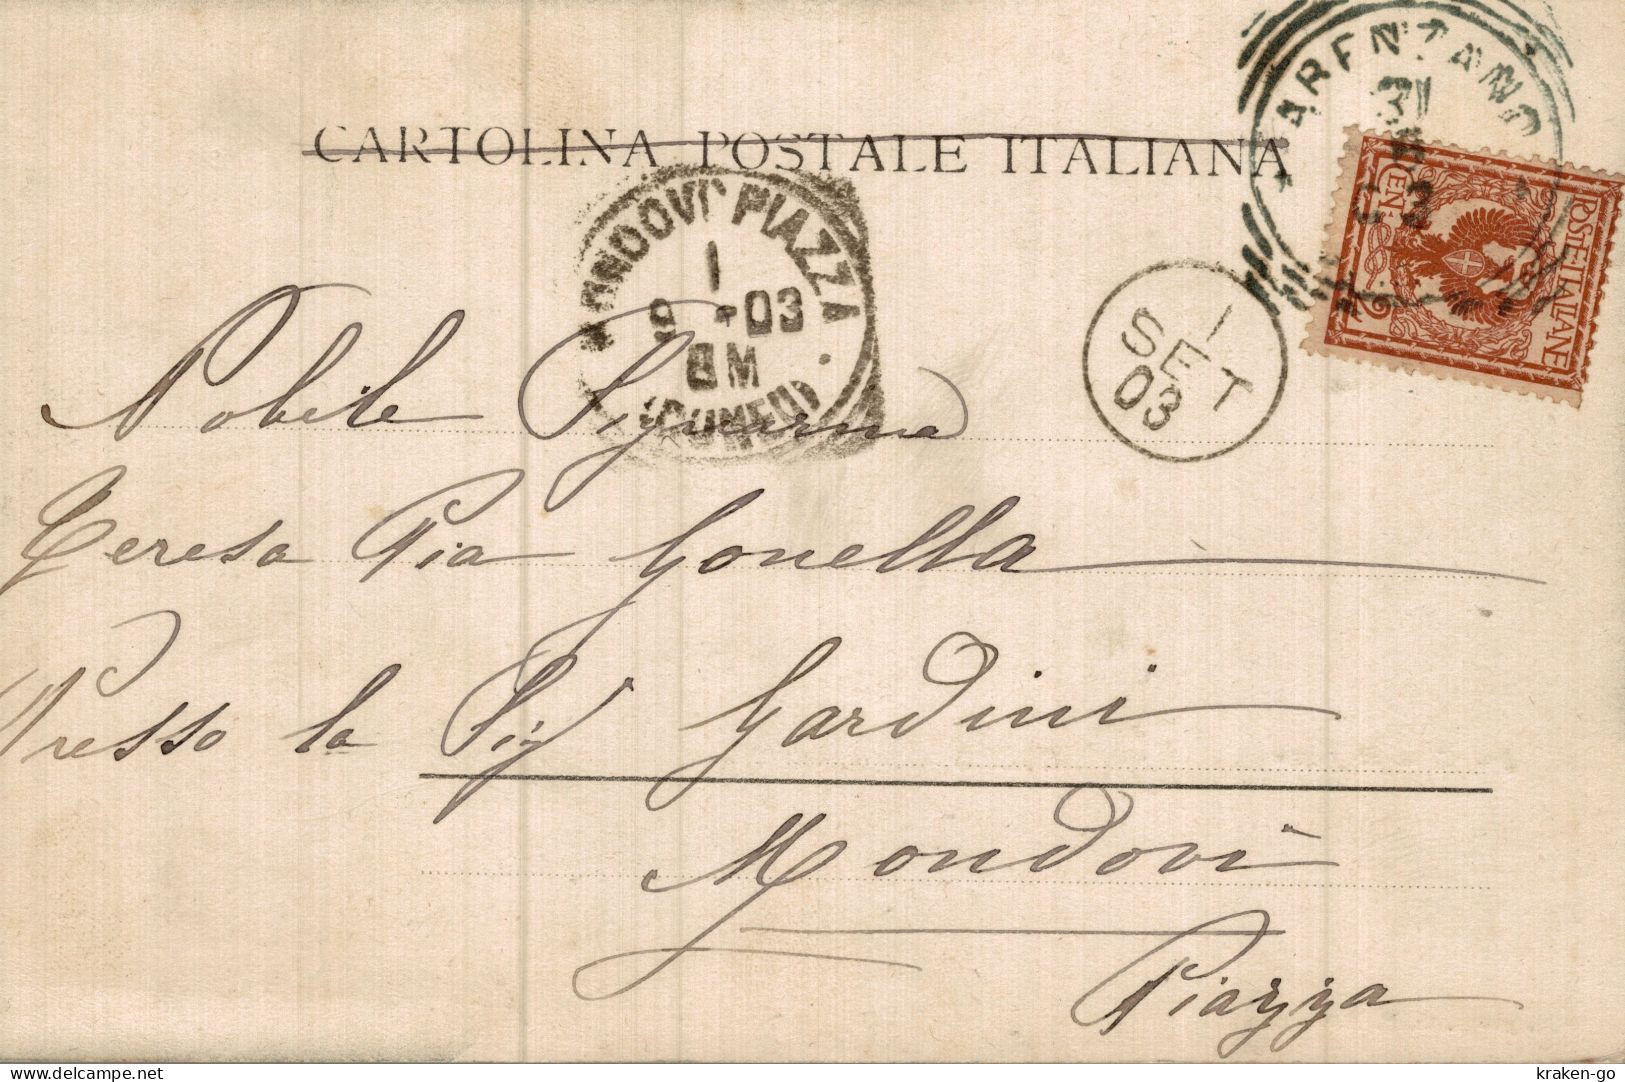 CARTOLINA POSTALE ITALIANA
MONDOVI' PIAZZA
1
9 -03
8M
(CUNEO)
1
SET
03
POSTE ITALIANE
CEN: 2
Nobile Signorina
Teresa Pia Gonella
Presso la Sig Gardini
Mondovì
Piazza
delcampe.net
kraken-go